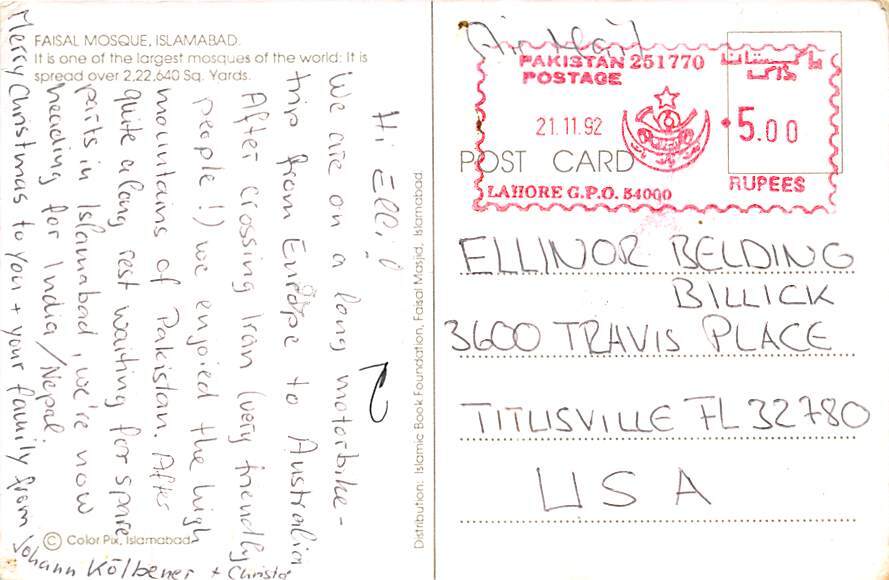 FAISAL MOSQUE, ISLAMABAD.
It is one of the largest mosques of the world: It is
spread over 2,22,640 Sq. Yards.
Hi Elli!
We are on a long motorbike-
trip from Europe to Australia.
After crossing Iran (very friendly
people!) we enjoied the high
mountains of Pakistan. After
quite a long rest waiting for spare
parts in Islamabad, we're now
heading for India/Nepal.
Merry Christmas to you + your family from
Johann Kölbener + Christa
© Color Pix, Islamabad.
Distribution: Islamic Book Foundation, Faisal Masjid, Islamabad.
Air Mail
PAKISTAN 251770
POSTAGE
پاکستان
21.11.92
5.00
POST CARD
LAHORE G.P.O. 54000
RUPEES
ELLINOR BELDING
BILLICK
3600 TRAVIS PLACE
TITUSVILLE FL 32780
USA